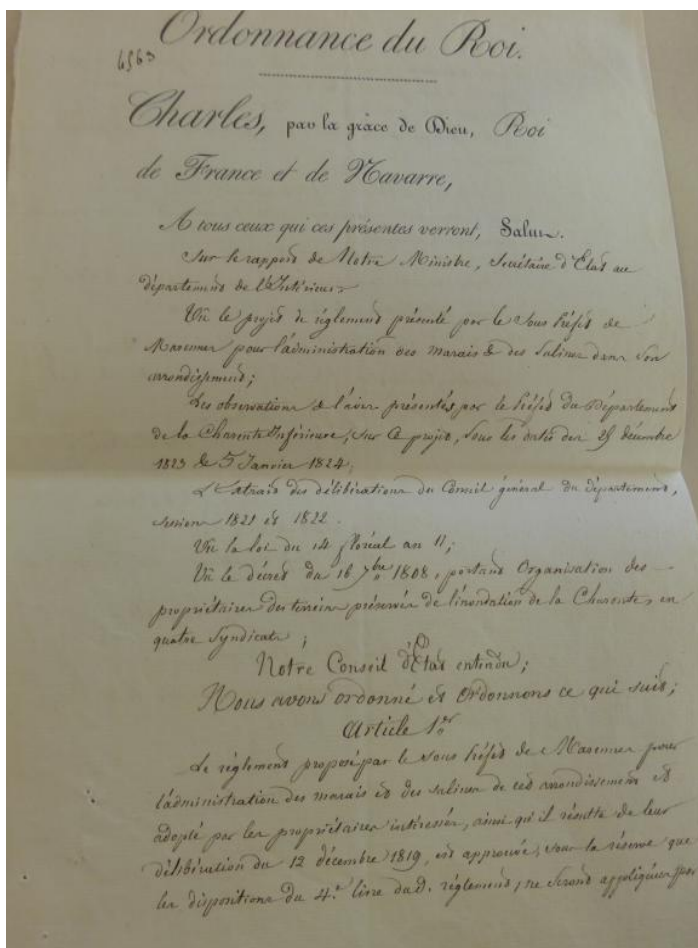 Ordonnance du Roi.
6563
Charles, par la grâce de Dieu, Roi
de France et de Navarre,
A tous ceux qui ces présentes verront, Salut.
Sur le rapport de Notre Ministre, Secrétaire d'Etat au
département de l'Intérieur
Vu le projet de règlement présenté par le Sous Préfet de
Marennes pour l'administration des marais & des Salines dans son
arrondissement;
Les observations & l'avis présentés par le Préfet du Département
de la Charente Inférieure, sur ce projet, sous les dates des 29 décembre
1823 & 5 Janvier 1824;
L'Extrait des délibérations du Conseil général du département,
session 1821 et 1822.
Vu la loi du 14 floréal an 11;
Vu le décret du 16 7bre 1808, portant Organisation des
propriétaires des terrains préservés de l'inondation de la Charente, en
quatre Syndicats;
Notre Conseil d'Etat entendu;
Nous avons ordonné et ordonnons ce qui suit;
Article 1er
Le règlement proposé par le Sous Préfet de Marennes pour
l'administration des marais et des salines de cet arrondissement et
adopté par les propriétaires intéressés, ainsi qu'il résulte de leur
délibération du 12 décembre 1819, est approuvé, sous la réserve que
les dispositions du 4.e livre dud. règlement, ne seront appliquées